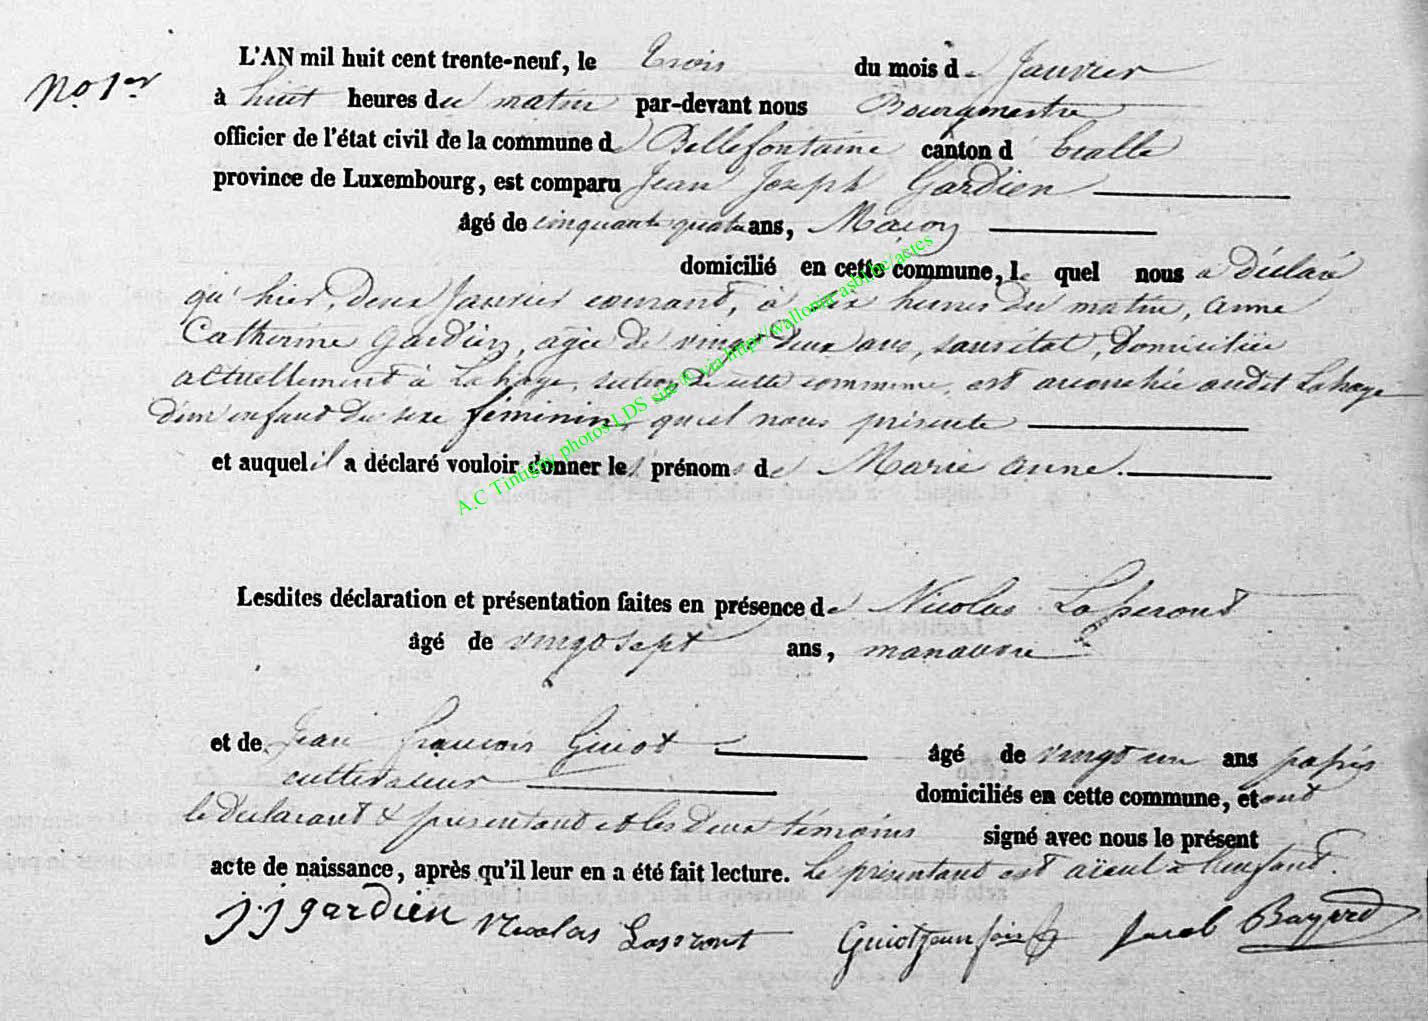 No 1er
L'AN mil huit cent trente-neuf, le trois du mois de Janvier
à huit heures du matin par-devant nous Bourgmestre
officier de l'état civil de la commune de Bellefontaine canton d'Etalle
province de Luxembourg, est comparu Jean Joseph Gardien
âgé de cinquante quatre ans, Maçon
domicilié en cette commune, le quel nous a déclaré
qu'hier, deux Janvier courant, à six heures du matin, anne
Catherine Gardien, agée de vingt deux ans, sans état, domiciliée
actuellement à Lahage, section de cette commune, est accouchée audit Lahage
d'un enfant du sexe féminin, qu'il nous présente
et auquel il a déclaré vouloir donner les prénoms de Marie anne.
Lesdites déclaration et présentation faites en présence de Nicolas Lasseront
âgé de vingt sept ans, manœuvre
et de Jean françois Guiot âgé de vingt un ans passés
cultivateur domiciliés en cette commune, et ont
le déclarant & présentant et les deux témoins signé avec nous le présent
acte de naissance, après qu'il leur en a été fait lecture. Le présentant est aïeul à l'enfant.
j.j gardien Nicolas Guiot jean fois Jacob Bayard
A.C Tintigny photos LDS via http://wallonia.asbl.be/actes